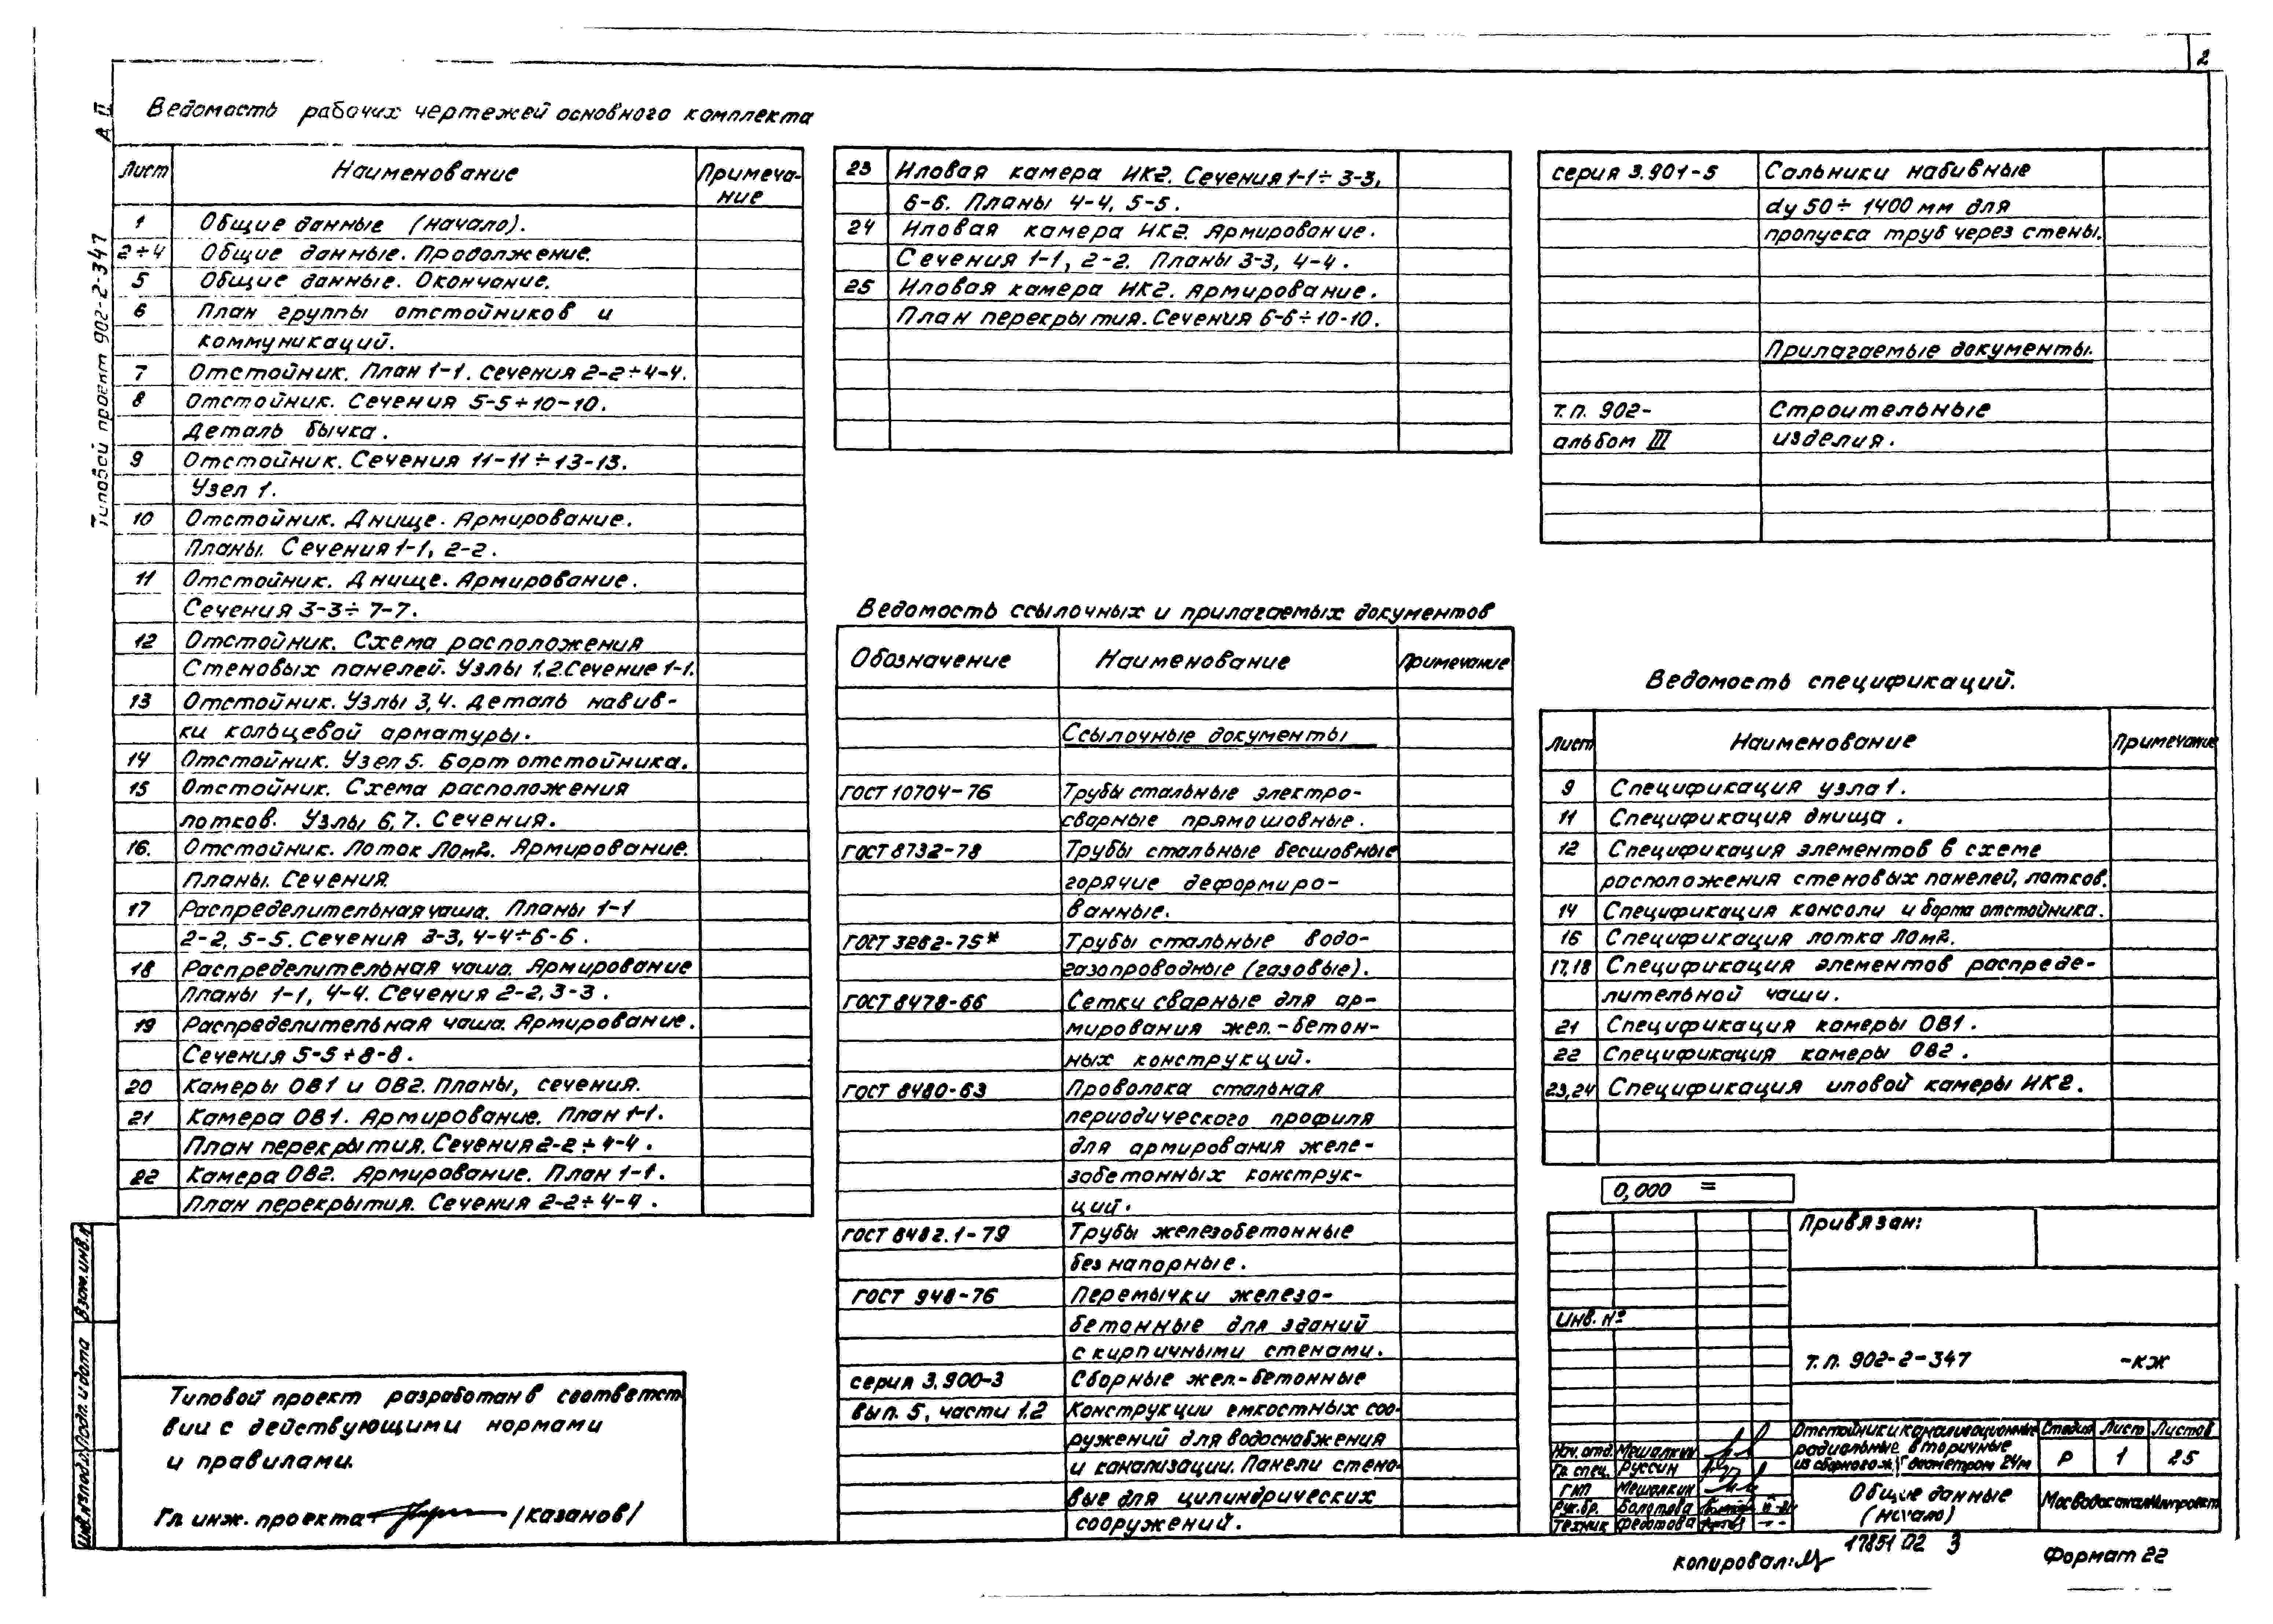 2
А II
Типовой проект 902-2-347
Ведомость рабочих чертежей основного комплекта
Лист Наименование Примеча-
ние
1 Общие данные (начало).
2÷4 Общие данные. Продолжение.
5 Общие данные. Окончание.
6 План группы отстойников и
коммуникаций.
7 Отстойник. План 1-1. Сечения 2-2÷4-4.
8 Отстойник. Сечения 5-5÷10-10.
Деталь бычка.
9 Отстойник. Сечения 11-11÷13-13.
Узел 1.
10 Отстойник. Днище. Армирование.
Планы. Сечения 1-1, 2-2.
11 Отстойник. Днище. Армирование.
Сечения 3-3÷7-7.
12 Отстойник. Схема расположения
Стеновых панелей. Узлы 1,2. Сечение 1-1.
13 Отстойник. Узлы 3,4. Деталь навив-
ки кольцевой арматуры.
14 Отстойник. Узел 5. Борт отстойника.
15 Отстойник. Схема расположения
лотков. Узлы 6,7. Сечения.
16. Отстойник. Лоток Лом2. Армирование.
Планы. Сечения.
17 Распределительная чаша. Планы 1-1
2-2, 5-5. Сечения 3-3, 4-4÷6-6.
18 Распределительная чаша. Армирование
Планы 1-1, 4-4. Сечения 2-2, 3-3.
19 Распределительная чаша. Армирование.
Сечения 5-5÷8-8.
20 Камеры ОВ1 и ОВ2. Планы, сечения.
21 Камера ОВ1. Армирование. План 1-1.
План перекрытия. Сечения 2-2÷4-4.
22 Камера ОВ2. Армирование. План 1-1.
План перекрытия. Сечения 2-2÷4-4.
23 Иловая камера ИК2. Сечения 1-1÷3-3,
6-6. Планы 4-4, 5-5.
24 Иловая камера ИК2. Армирование.
Сечения 1-1, 2-2. Планы 3-3, 4-4.
25 Иловая камера ИК2. Армирование.
План перекрытия. Сечения 6-6÷10-10.
Ведомость ссылочных и прилагаемых документов
Обозначение Наименование Примечание
Ссылочные документы
ГОСТ 10704-76 Трубы стальные электро-
сварные прямошовные.
ГОСТ 8732-78 Трубы стальные бесшовные
горячие деформиро-
ванные.
ГОСТ 3262-75* Трубы стальные водо-
газопроводные (газовые).
ГОСТ 8478-66 Сетки сварные для ар-
мирования жел.-бетон-
ных конструкций.
ГОСТ 8480-63 Проволока стальная
периодического профиля
для армирования желе-
зобетонных конструк-
ций.
ГОСТ 6482.1-79 Трубы железобетонные
безнапорные.
ГОСТ 948-76 Перемычки железо-
бетонные для зданий
с кирпичными стенами.
серия 3.900-3 Сборные жел.-бетонные
вып. 5, части 1.2 Конструкции емкостных соо-
ружений для водоснабжения
и канализации. Панели стено-
вые для цилиндрических
сооружений.
серия 3.901-5 Сальники набивные
dу 50÷1400 мм для
пропуска труб через стены.
Прилагаемые документы.
т.п. 902- Строительные
альбом III изделия.
Ведомость спецификаций.
Лист Наименование Примечание
9 Спецификация узла 1.
11 Спецификация днища.
12 Спецификация элементов в схеме
расположения стеновых панелей, лотков.
14 Спецификация консоли и борта отстойника.
16 Спецификация лотка Лом2.
17,18 Спецификация элементов распреде-
лительной чаши.
21 Спецификация камеры ОВ1.
22 Спецификация камеры ОВ2.
23,24 Спецификация иловой камеры ИК2.
0,000 =
Привязан:
Инв. №
т.п. 902-2-347 -КЖ
Отстойники канализационные
радиальные вторичные
из сборного ж/ диаметром 24м
Стадия Лист Листов
Р 1 25
Общие данные
(начало)
Мосводоканалниипроект
Нач. отд. Мешалкин
Гл. спец. Руссин
ГИП Мешалкин
Рук. бр. Болотова
Техник Федотова
Типовой проект разработан в соответст
вии с действующими нормами
и правилами.
Гл. инж. проекта /Казанов/
Взам. инв. №
Подп. и дата
Инв. № подл.
копировал:
17851 02 3
Формат 22